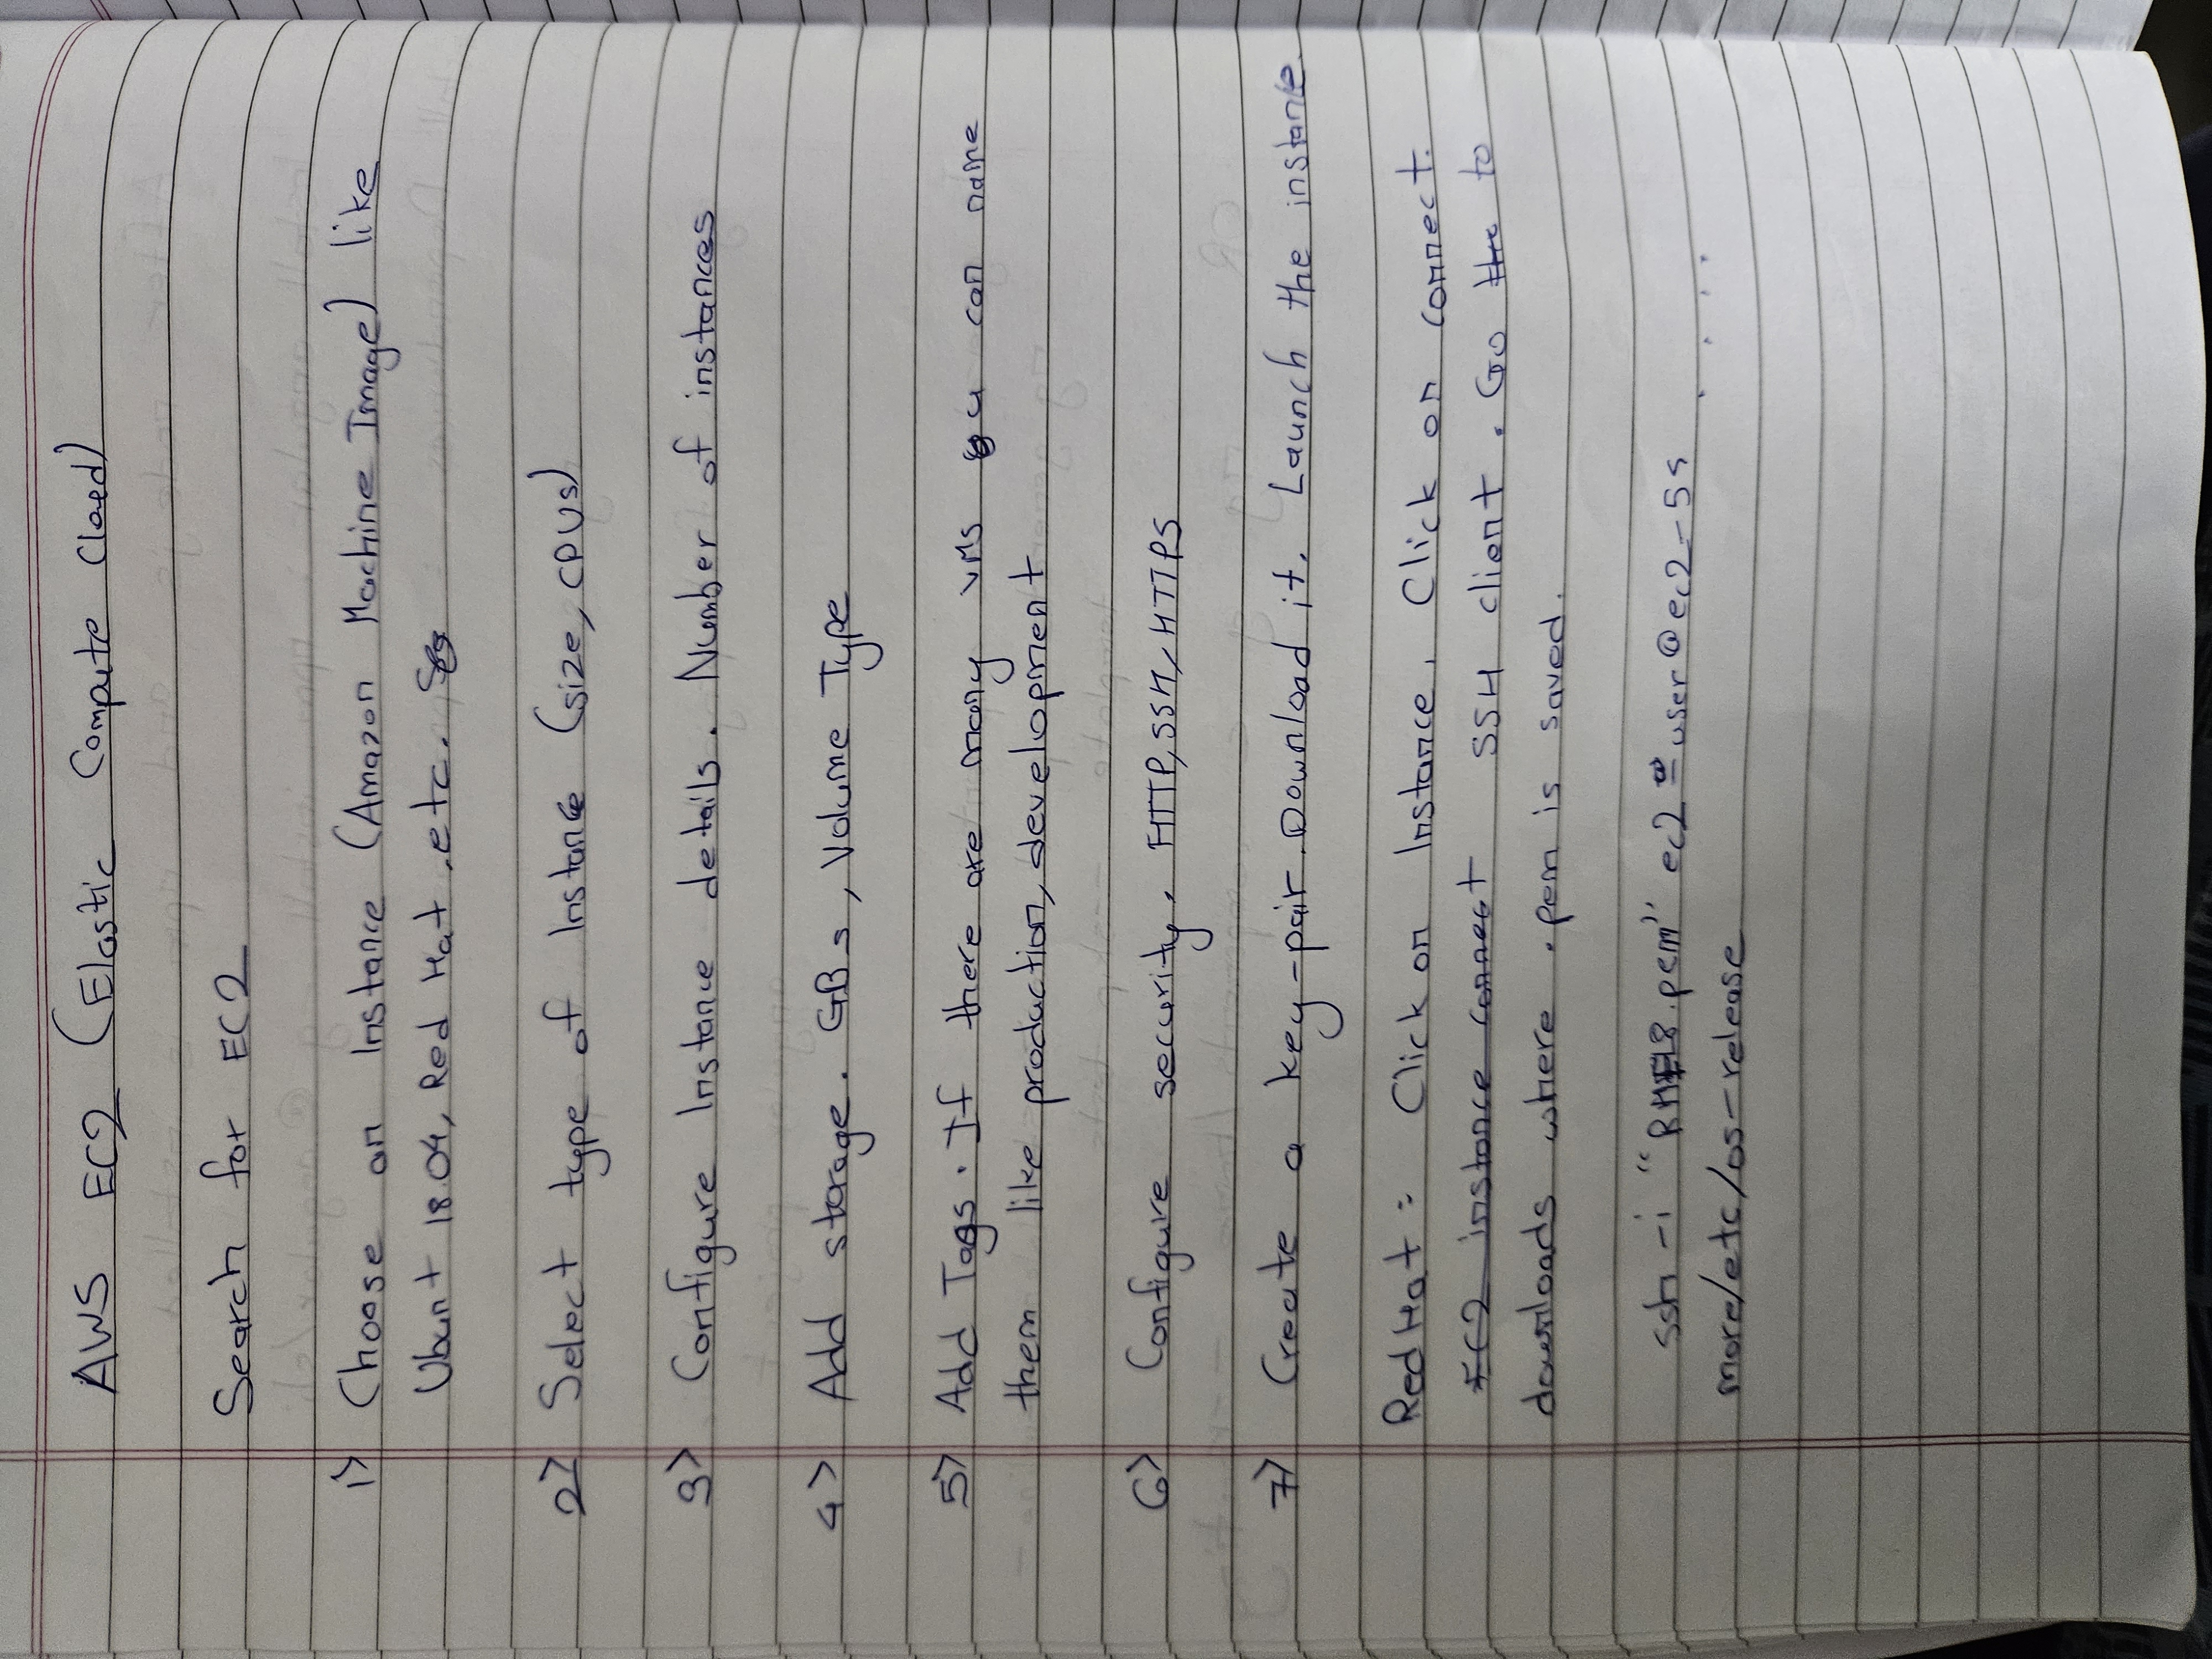 AWS EC2 (Elastic Compute Cloud)
Search for EC2
1> Choose an Instance (Amazon Machine Image) like
Ubunt 18.04, Red Hat, etc.
2> Select type of Instance (size, CPUs)
3> Configure Instance details. Number of instances
4> Add storage. GBs, Volume Type
5> Add Tags. If there are many VMs u can name
them like production, development
6> Configure security. HTTP, SSH, HTTPS
7> Create a key-pair. Download it. Launch the instance.
RedHat: Click on Instance. Click on connect.
EC2 instance connect SSH client. Go to
downloads where .pem is saved.
ssh -i "RHEL8.pem" ec2-user@ec2-54 . . . .
more/etc/os-release